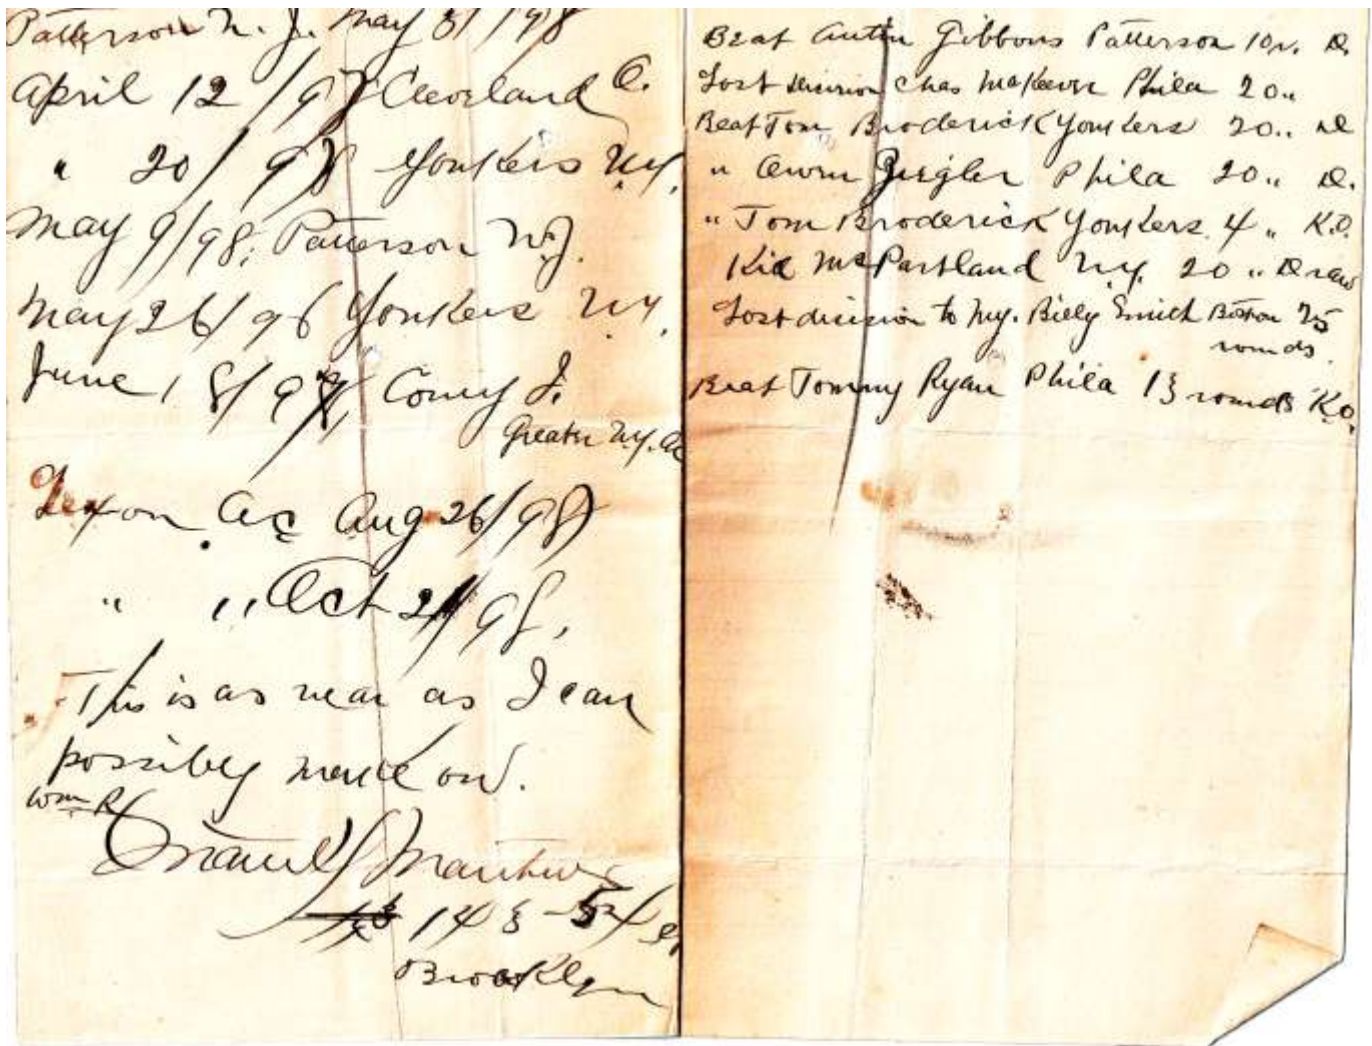 Patterson N. J. May 31/98
April 12/97 Cleveland O.
" 20/98 Yonkers N.Y.
May 9/98. Patterson N.J.
May 26/96 Yonkers N.Y.
June 18/97, Coney I.
Greater N.Y. A.C.
Lexon A.C. Aug 26/98
" " Oct 21/98.
This is as near as I can
possibly make out.
Wm R
Matthews
143 - 54 St
Brooklyn
Beat Austin Gibbons Patterson 10 r. D.
Lost decision Chas McKeever Phila 20 "
Beat Tom Broderick Yonkers 20 " D
" Owen Ziegler Phila 20 " D.
" Tom Broderick Yonkers. 4 " K.O.
Kid McPartland N.Y. 20 " Draw
Lost decision to My. Billy Smith Boston 25
rounds.
Beat Tommy Ryan Phila 13 rounds K.O.